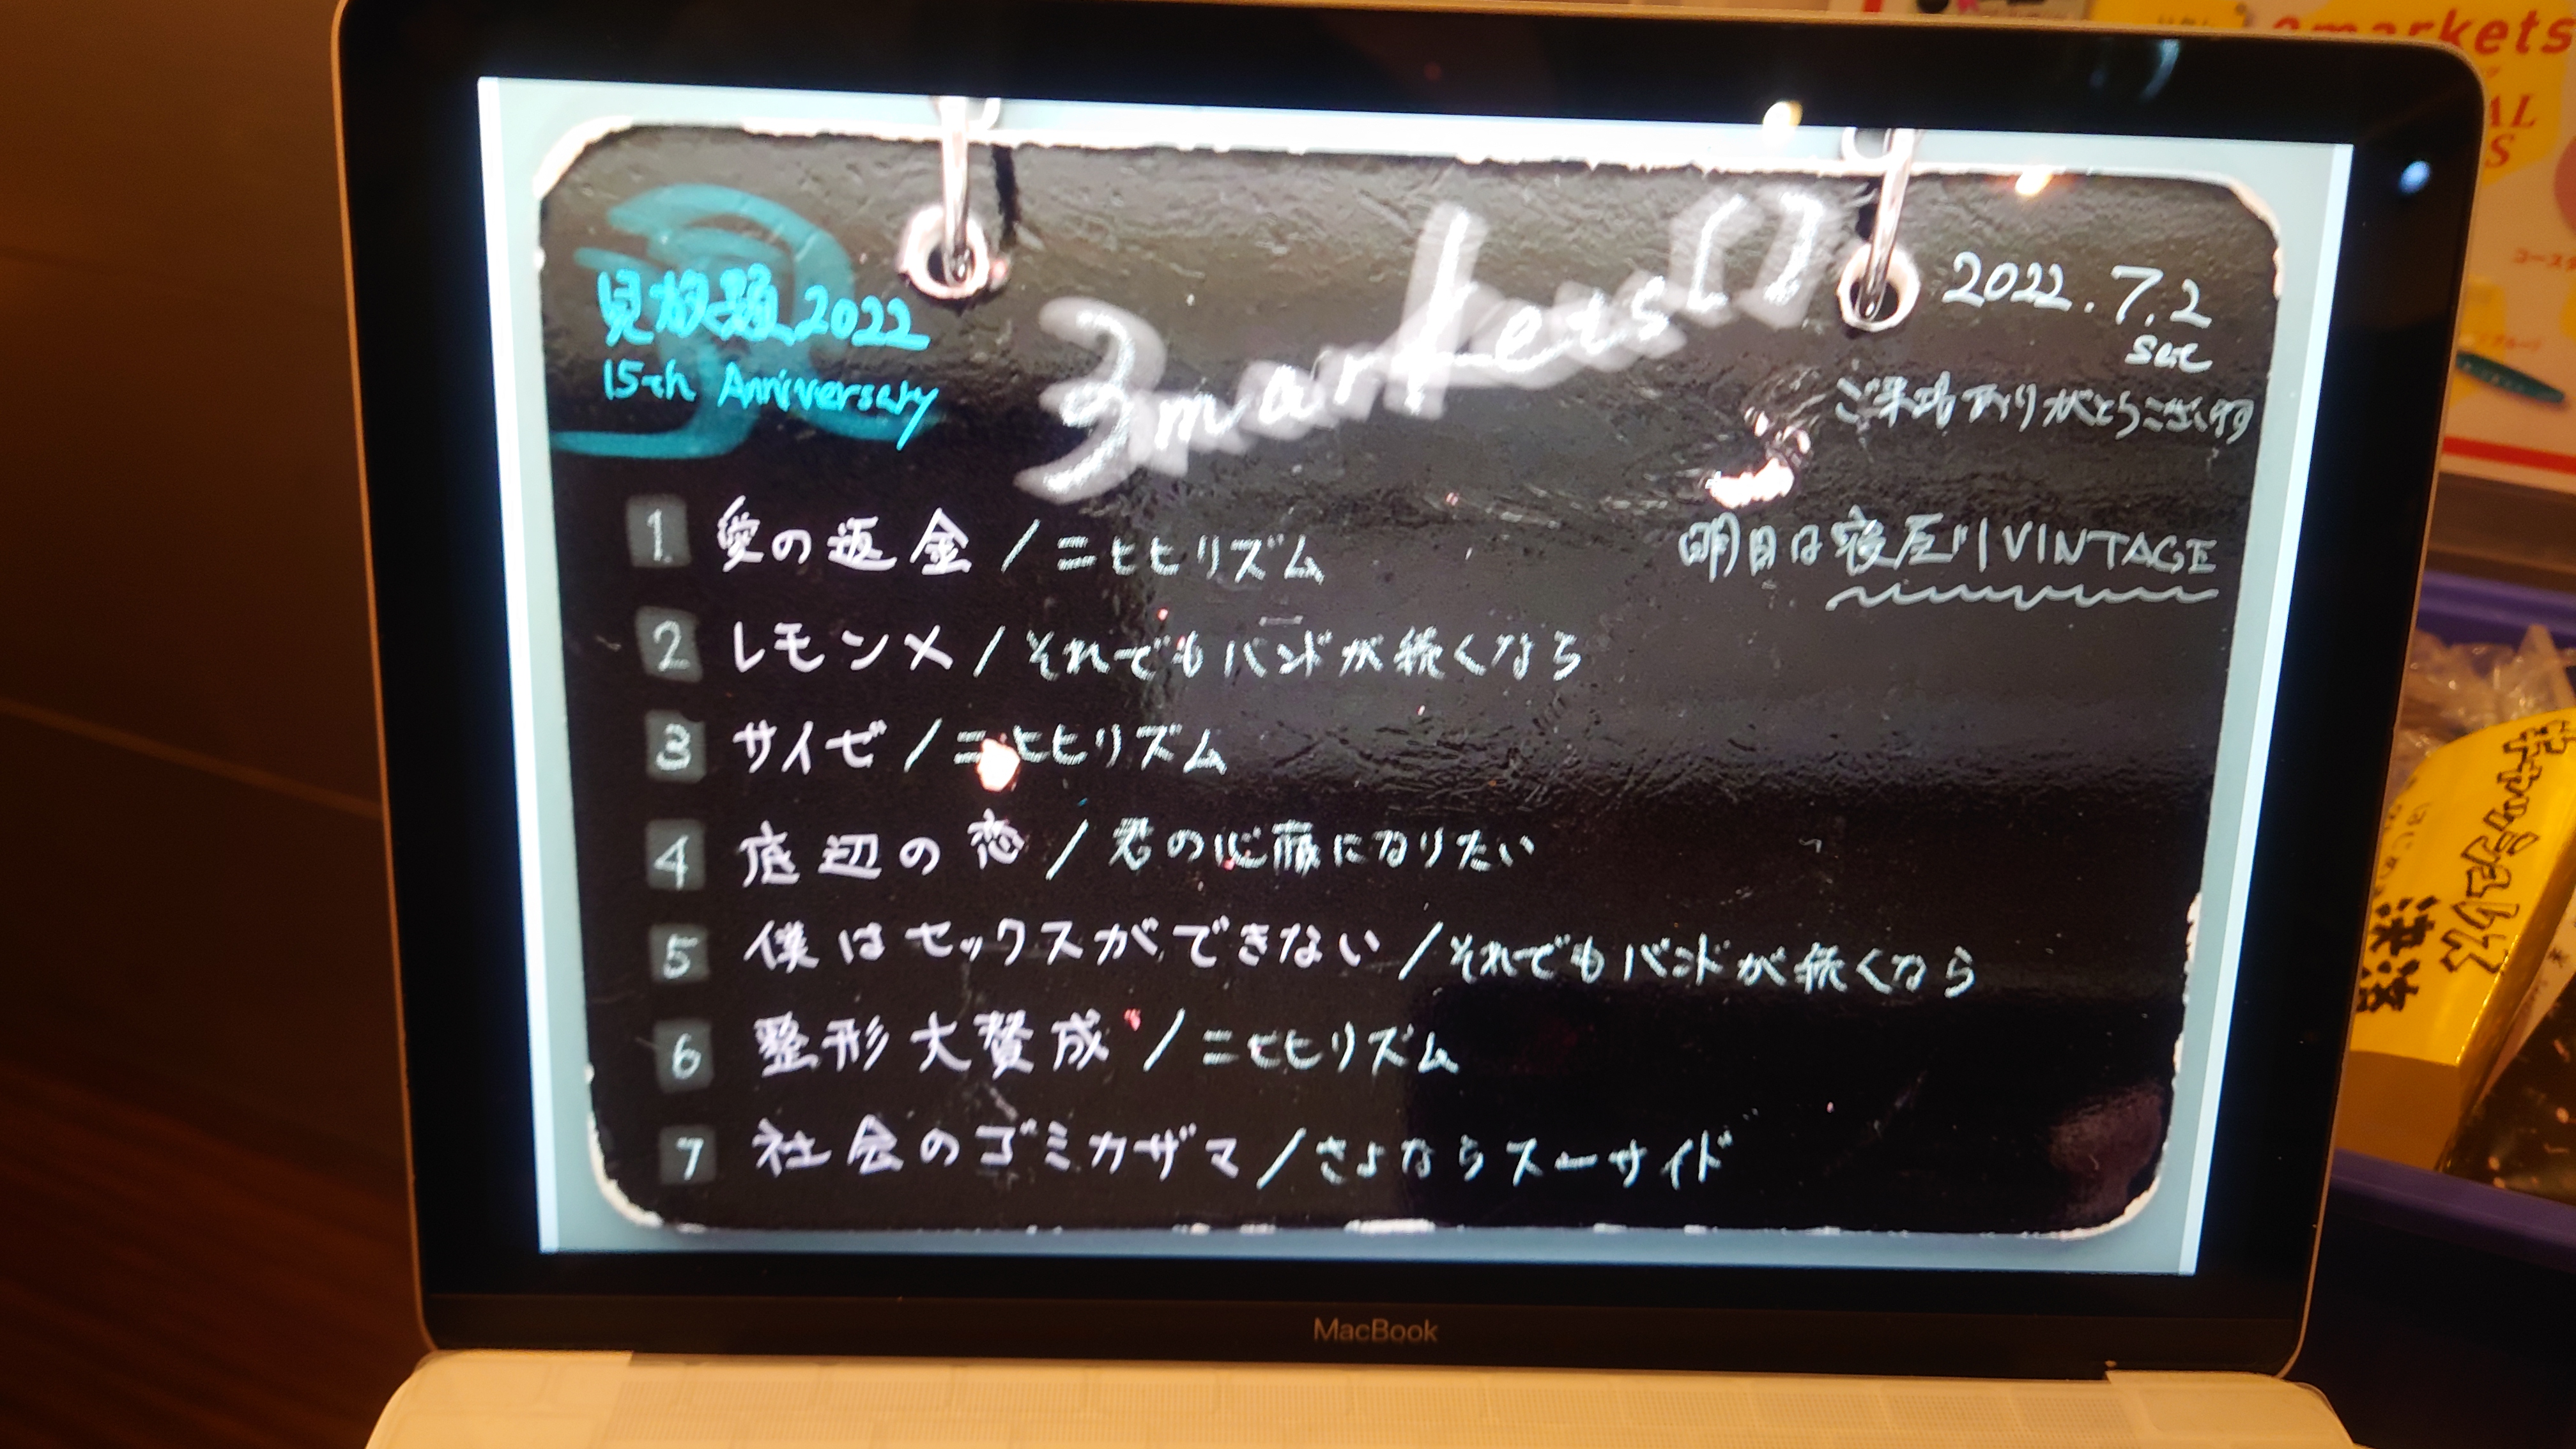 見放題2022
15th Anniversary
3markets[ ]
2022.7.2
sat
ご来場ありがとうございます
明日は寝屋川VINTAGE
1 愛の返金/ニヒヒリズム
2 レモン×/それでもバンドが続くなら
3 サイゼ/ニヒヒリズム
4 底辺の恋/君の心臓になりたい
5 僕はセックスができない/それでもバンドが続くなら
6 整形大賛成/ニヒヒリズム
7 社会のゴミカザマ/さよならスーサイド
MacBook
markets
AL
S